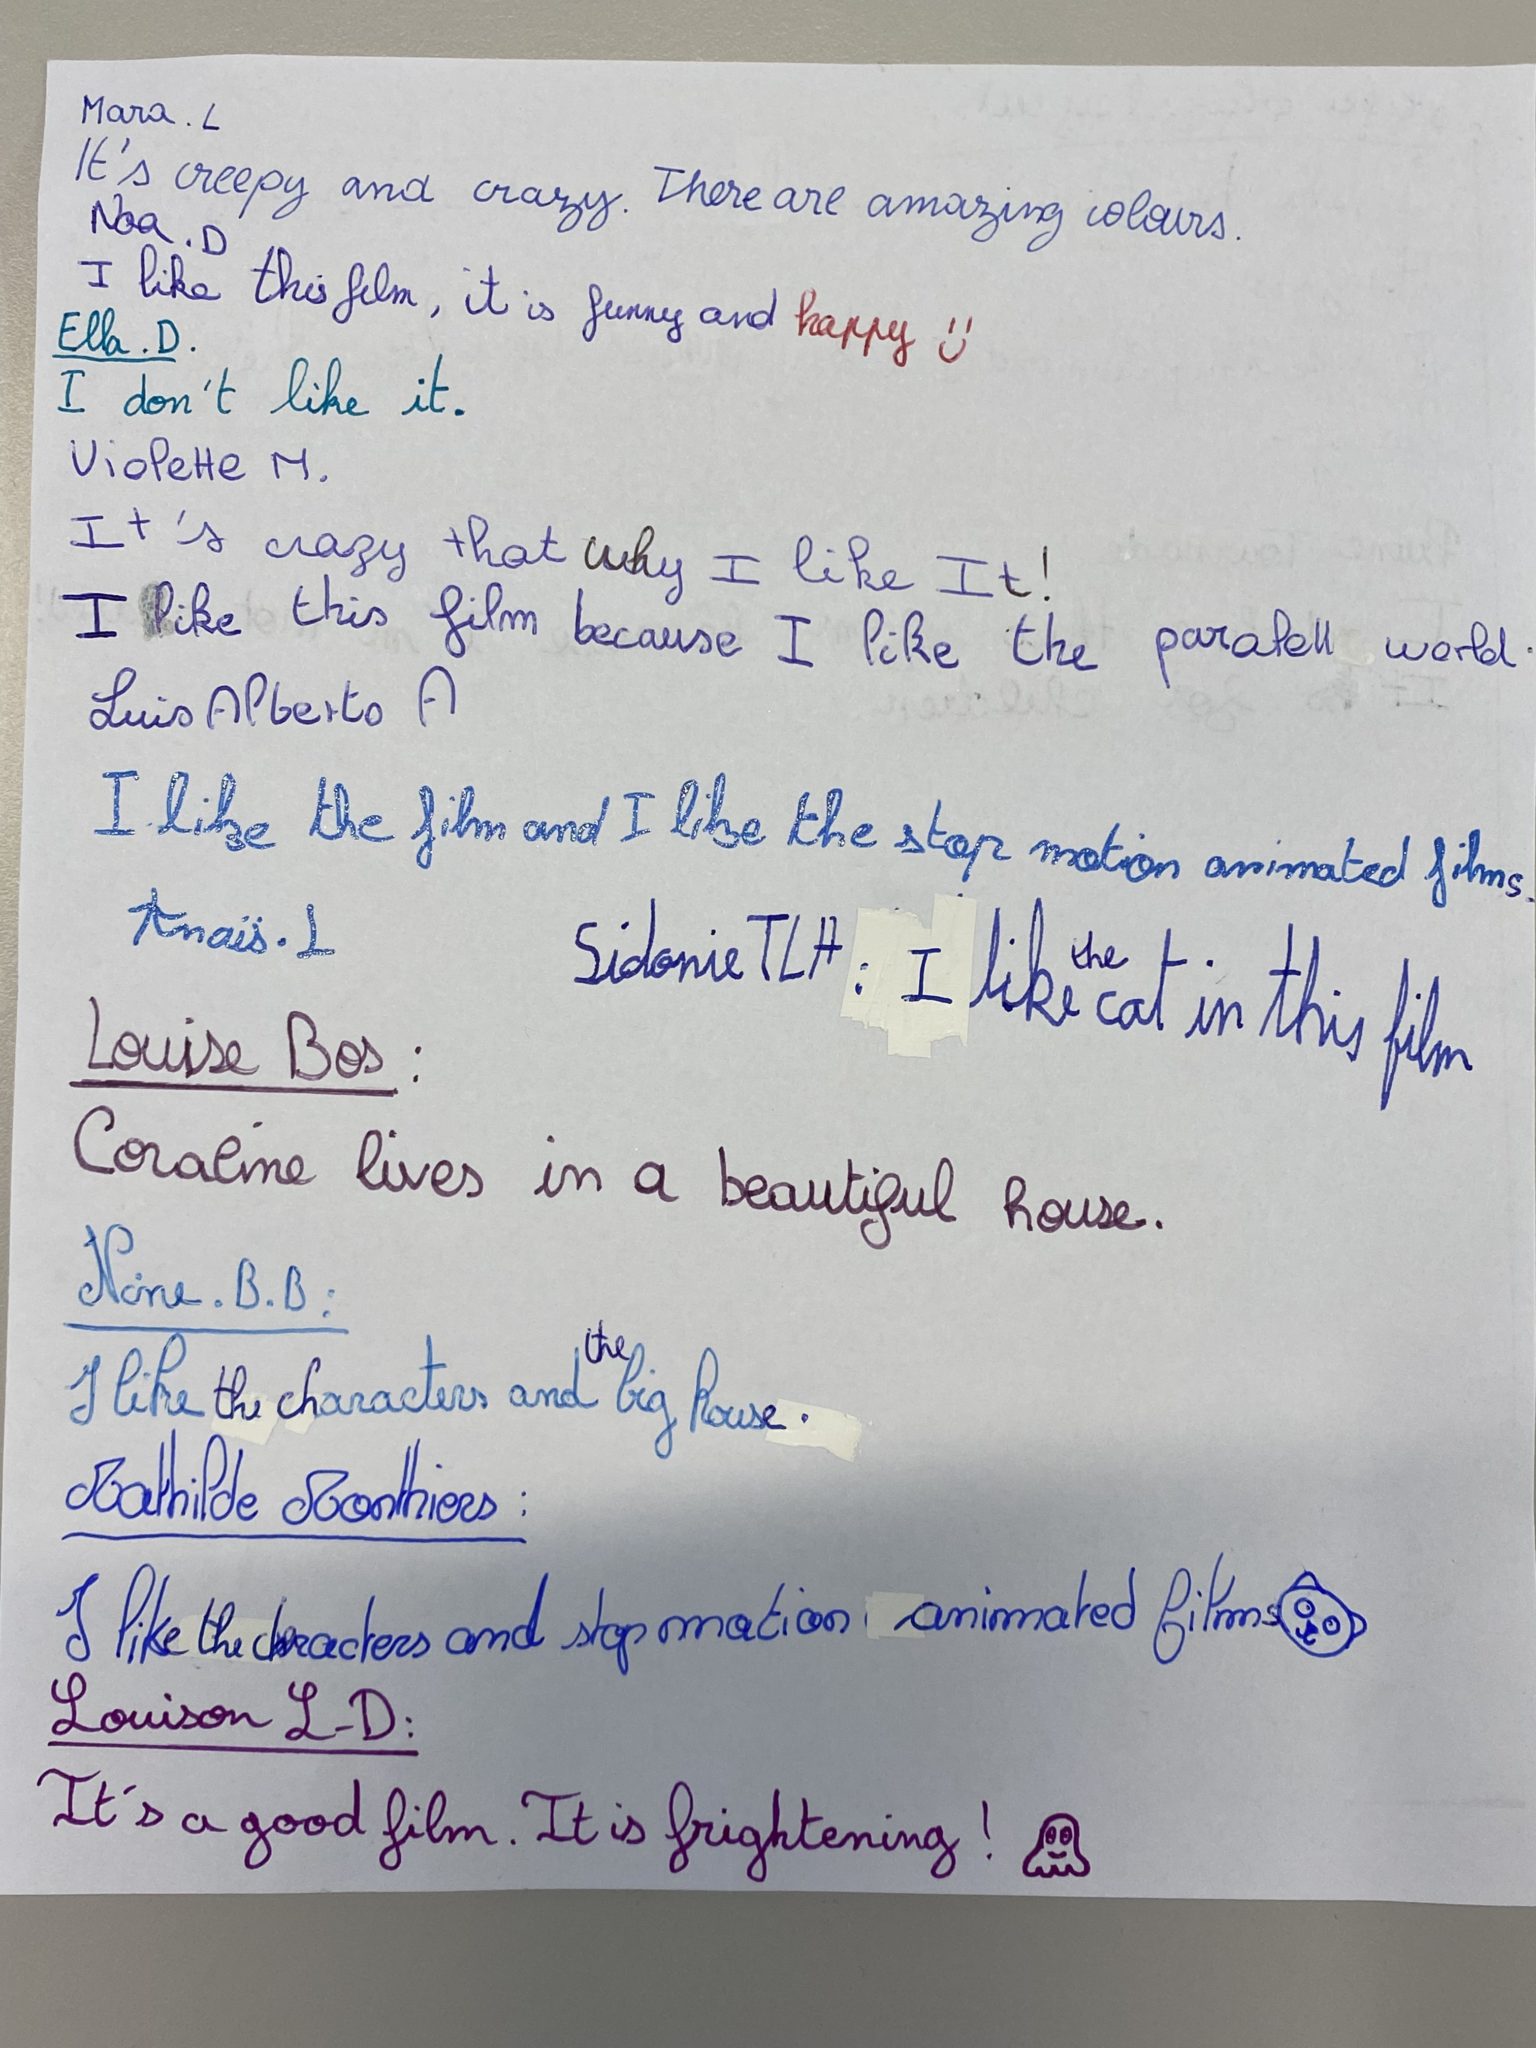 Mara. L
It's creepy and crazy. There are amazing colours.
Noa. D
I like this film, it is funny and happy
Ella. D.
I don't like it.
Violette M.
It's crazy that why I like It!
I like this film because I like the paralell world.
Luis Alberto A
I like the film and I like the stop motion animated films.
Anaïs. L
Sidonie TLH : I like the cat in this film
Louise Bos :
Coraline lives in a beautiful house.
Nine. B.B :
I like the characters and the big house.
Mathilde Monthiers :
I like the characters and stop motion animated films
Louison L-D :
It's a good film. It is frightening !